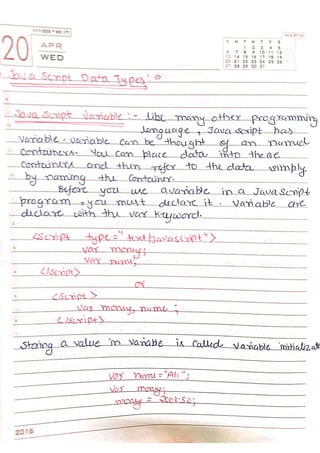 20 APR WED
MARCH
S M T W T F S
1 2 3 4 5
6 7 8 9 10 11 12
13 14 15 16 17 18 19
20 21 22 23 24 25 26
27 28 29 30 31
Java Script Data Types:
Java Script Variable:- like many other programming
language, Java script has
variable. variable can be thought of an named
Containers. You can place data into these
containers and then refer to the data simply
by naming the Container.
Before you use a variable in a JavaScript
program, you must declare it. Variable are
declare with the var keyword.
<Script type="text/javascript">
var money;
var name;
</Script>
or
<Script>
var money, name;
</Script>
Storing a value in variable is called variable initializat
var name="Ali";
var money;
money = 2000.50;
2016